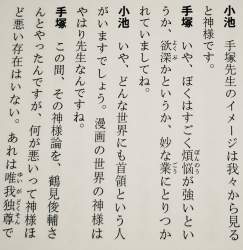 小池　手塚先生のイメージは我々から見る
と神様です。
手塚　いや、ぼくはすごく煩悩が強いとい
うか、欲深かというか、妙な業にとりつか
れていましてね。
小池　いや、どんな世界にも首領という人
がいますでしょう。漫画の世界の神様は
やはり先生なんですね。
手塚　この間、その神様論を、鶴見俊輔さ
んとやったんですが、何が悪いって神様ほ
ど悪い存在はいない。あれは唯我独尊で